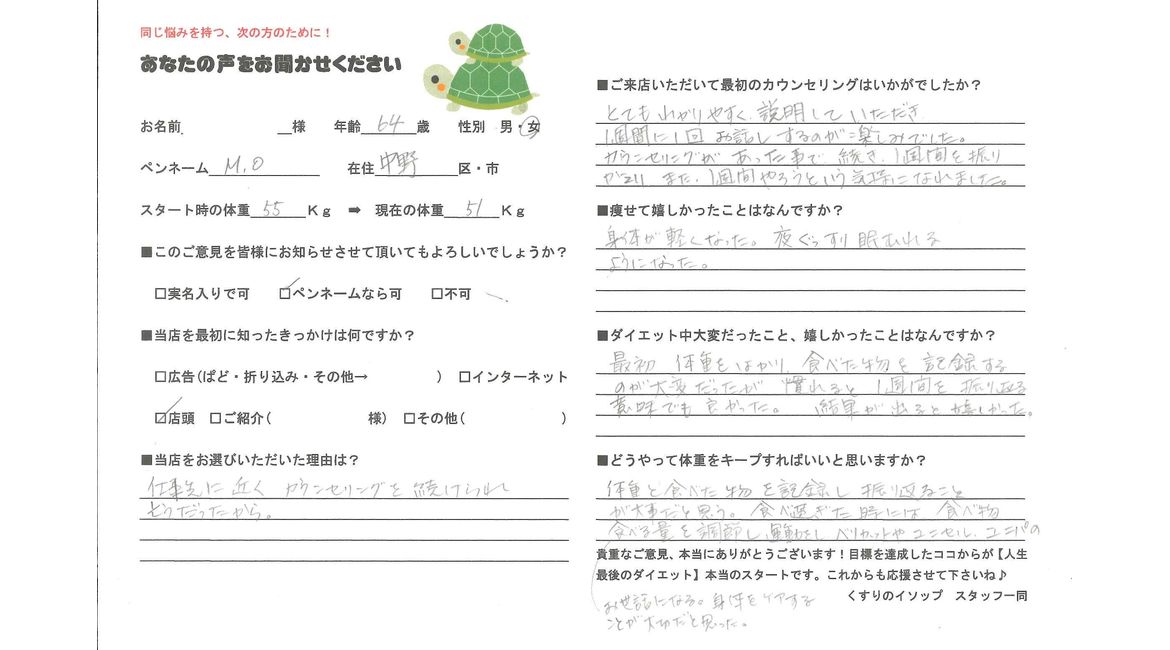 同じ悩みを持つ、次の方のために！
あなたの声をお聞かせください
お名前　　　様　年齢 64 歳　性別　男・女
ペンネーム M.O　在住 中野 区・市
スタート時の体重 55 Kg ➡ 現在の体重 51 Kg
■このご意見を皆様にお知らせさせて頂いてもよろしいでしょうか？
□実名入りで可　☑ペンネームなら可　□不可
■当店を最初に知ったきっかけは何ですか？
□広告(ぱど・折り込み・その他→　　　)　□インターネット
☑店頭　□ご紹介(　　　様)　□その他(　　　)
■当店をお選びいただいた理由は？
仕事先に近く カウンセリングを続けられ
そうだったから。
■ご来店いただいて最初のカウンセリングはいかがでしたか？
とてもわかりやすく、説明していただき
1週間に1回 お話しするのが楽しみでした。
カウンセリングが あった事で 続き、1週間を振り
がえり、また、1週間やろうという気持になれました。
■痩せて嬉しかったことはなんですか？
身体が軽くなった。夜ぐっすり眠むれる
ようになった。
■ダイエット中大変だったこと、嬉しかったことはなんですか？
最初 体重をはかり、食べた物を記録する
のが大変だったが 慣れると 1週間を振り返る
意味でも良かった。 結果が出ると嬉しかった。
■どうやって体重をキープすればいいと思いますか？
体重と食べた物を記録し振り返ること
が大事だと思う。食べ過ぎた時には 食べ物
食べる量を調節し、運動をし ベリカットやユニセル、ユニパの
貴重なご意見、本当にありがとうございます！目標を達成したココからが【人生
最後のダイエット】本当のスタートです。これからも応援させて下さいね♪
くすりのイソップ　スタッフ一同
お世話になる。身体をケアする
ことが大切だと思った。